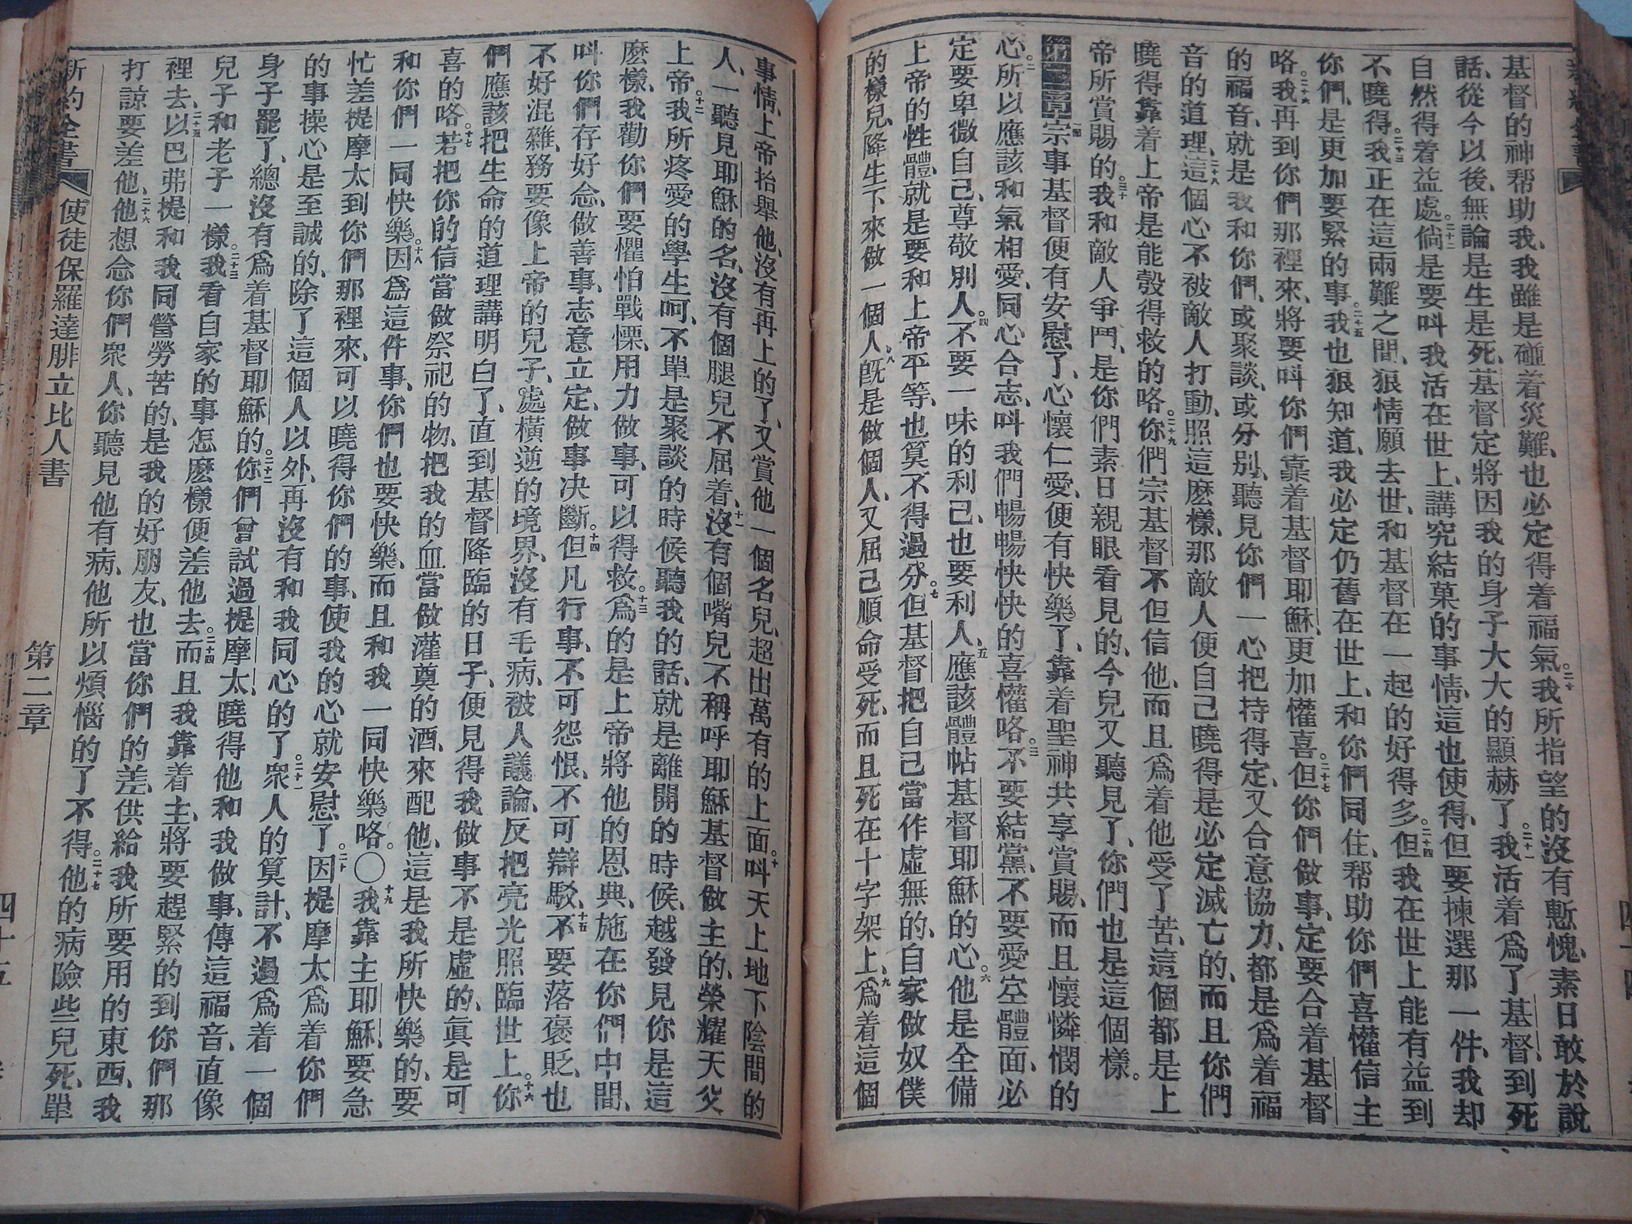 基督的神帮助我、我雖是碰着災難、也必定得着福氣。二十我所指望的沒有慙愧、素日敢於說
話、從今以後、無論是生是死、基督定將因我的身子大大的顯赫了。二十一我活着爲了基督、到死
自然得着益處。二十二倘是要呌我活在世上、講究結菓的事情、這也使得、但要揀選那一件、我却
不曉得。二十三我正在這兩難之間、狠情願去世、和基督在一起的好得多。二十四但我在世上能有益到
你們、是更加要緊的事。二十五我也狠知道、我必定仍舊在世上、和你們同住、帮助你們喜懽信主
咯。二十六我再到你們那裡來、將要呌你們靠着基督耶穌、更加懽喜。二十七但你們做事、定要合着基督
的福音、就是我和你們、或聚談、或分别、聽見你們一心把持得定、又合意協力、都是爲着福
音的道理、二十八這個心不被敵人打動、照這麽樣、那敵人便自己曉得是必定滅亡的、而且你們
曉得靠着上帝是能彀得救的咯。二十九你們宗基督不但信他、而且爲着他受了苦、這個都是上
帝所賞賜的。三十我和敵人爭鬥、是你們素日親眼看見的、今兒又聽見了、你們也是這個樣。
第二章一節宗事基督便有安慰了、心懷仁愛、便有快樂了、靠着聖神共享賞賜、而且懷憐憫的
心。二所以應該和氣相愛、同心合志、呌我們暢暢快快的喜懽咯。三不要結黨、不要愛空體面、必
定要卑微自己、尊敬別人。四不要一味的利己、也要利人。五應該體帖基督耶穌的心。六他是全備
上帝的性體、就是要和上帝平等、也算不得過分。七但基督把自己當作虛無的、自家做奴僕
的樣兒、降生下來做一個人。八旣是做個人、又屈己順命受死、而且死在十字架上。九爲着這個
事情、上帝抬舉他、沒有再上的了、又賞他一個名兒、超出萬有的上面。十呌天上地下陰間的
人、一聽見耶穌的名、沒有個腿兒不屈着、十一沒有個嘴兒不稱呼耶穌基督做主的、榮耀天父
上帝。十二我所疼愛的學生呵、不單是聚談的時候聽我的話、就是離開的時候、越發見你是這
麽樣、我勸你們要懼怕戰慄、用力做事、可以得救。十三爲的是上帝將他的恩典、施在你們中間、
呌你們存好念、做善事、志意立定、做事决斷。十四但凡行事、不可怨恨、不可辯駁、十五不要落褒貶、也
不好混雜、務要像上帝的兒子、處橫逆的境界、沒有毛病、被人議論、反把亮光照臨世上。十六你
們應該把生命的道理講明白了、直到基督降臨的日子、便見得我做事不是虛的、眞是可
喜的咯。十七若把你的信當做祭祀的物、把我的血當做灌奠的酒、來配他、這是我所快樂的、要
和你們一同快樂。十八因爲這件事、你們也要快樂、而且和我一同快樂咯。〇十九我靠主耶穌、要急
忙差提摩太到你們那裡來、可以曉得你們的事、使我的心就安慰了。二十因提摩太爲着你們
的事操心、是至誠的、除了這個人以外、再沒有和我同心的了。二十一衆人的算計、不過爲着一個
身子罷了、總沒有爲着基督耶穌的。二十二你們曾試過提摩太、曉得他和我做事、傳這福音、直像
兒子和老子一樣。二十三我看自家的事怎麽樣、便差他去。二十四而且我靠着主、將要趕緊的到你們那
裡去。二十五以巴弗提和我同營勞苦的、是我的好朋友、也當你們的差、供給我所要用的東西、我
打諒要差他。二十六他想念你們衆人、你聽見他有病、他所以煩惱的了不得。二十七他的病險些兒死、單
新約全書　使徒保羅達腓立比人書　第二章　四十五